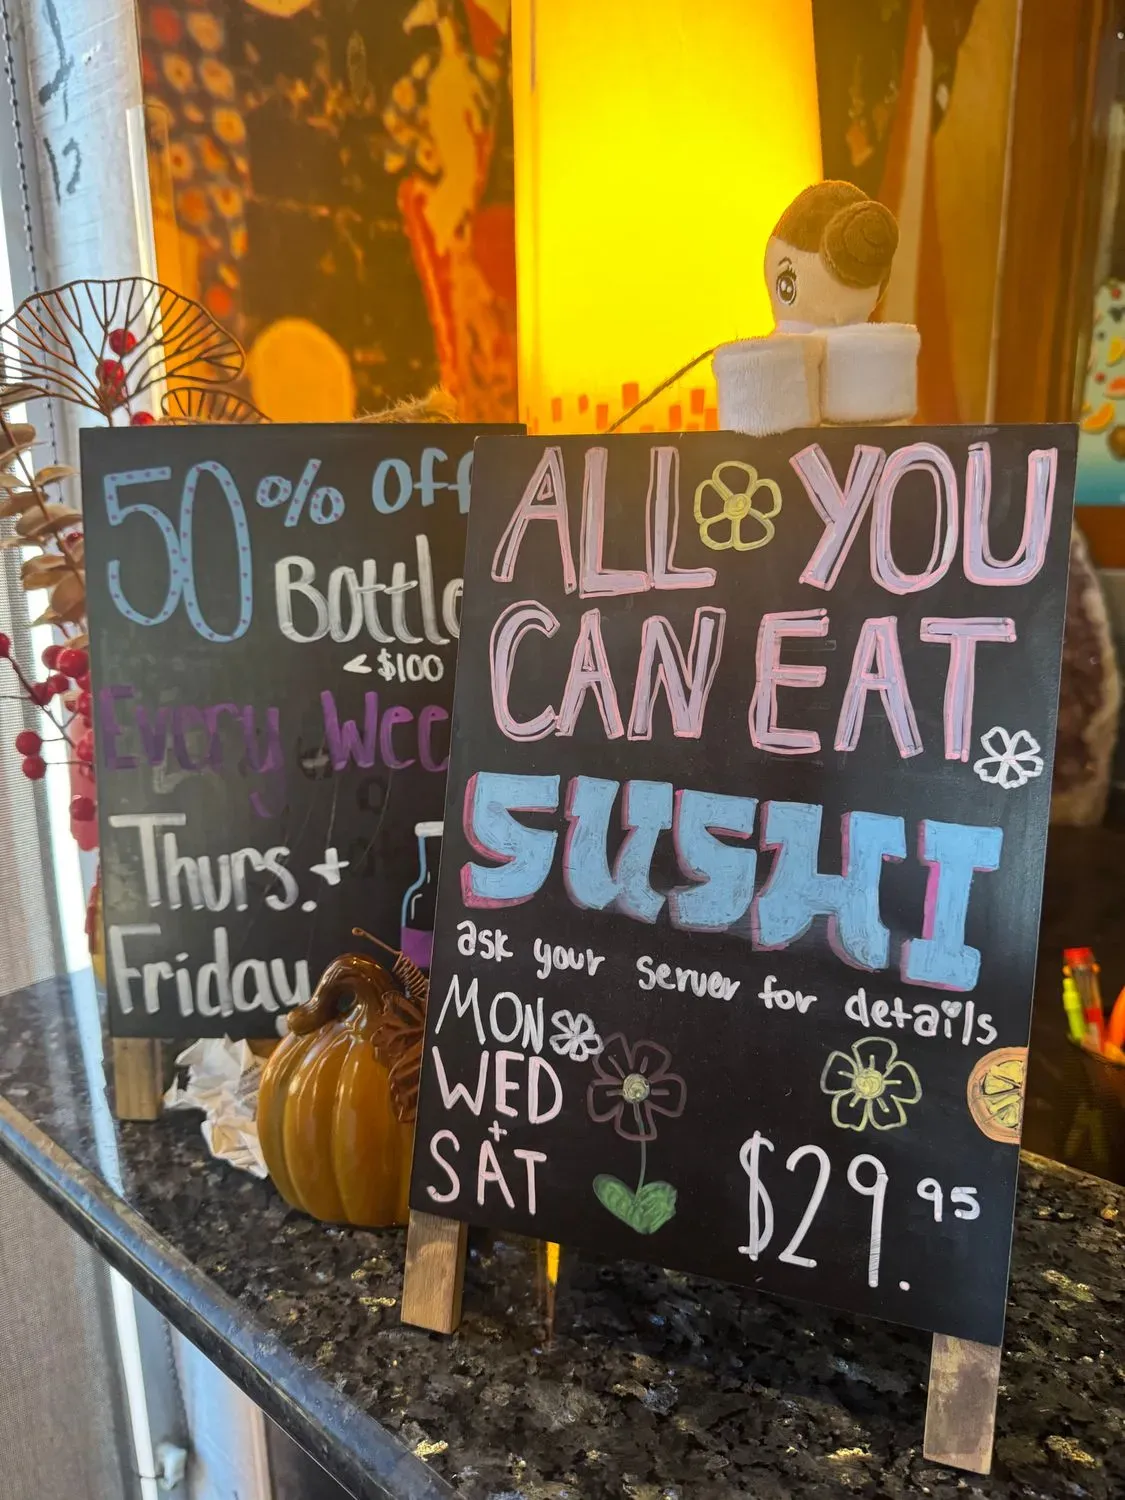 50% Off
Bottle
< $100
Every Wee
Thurs. +
Friday
ALL YOU
CAN EAT
SUSHI
ask your server for details
MON
WED
+
SAT
$29.95